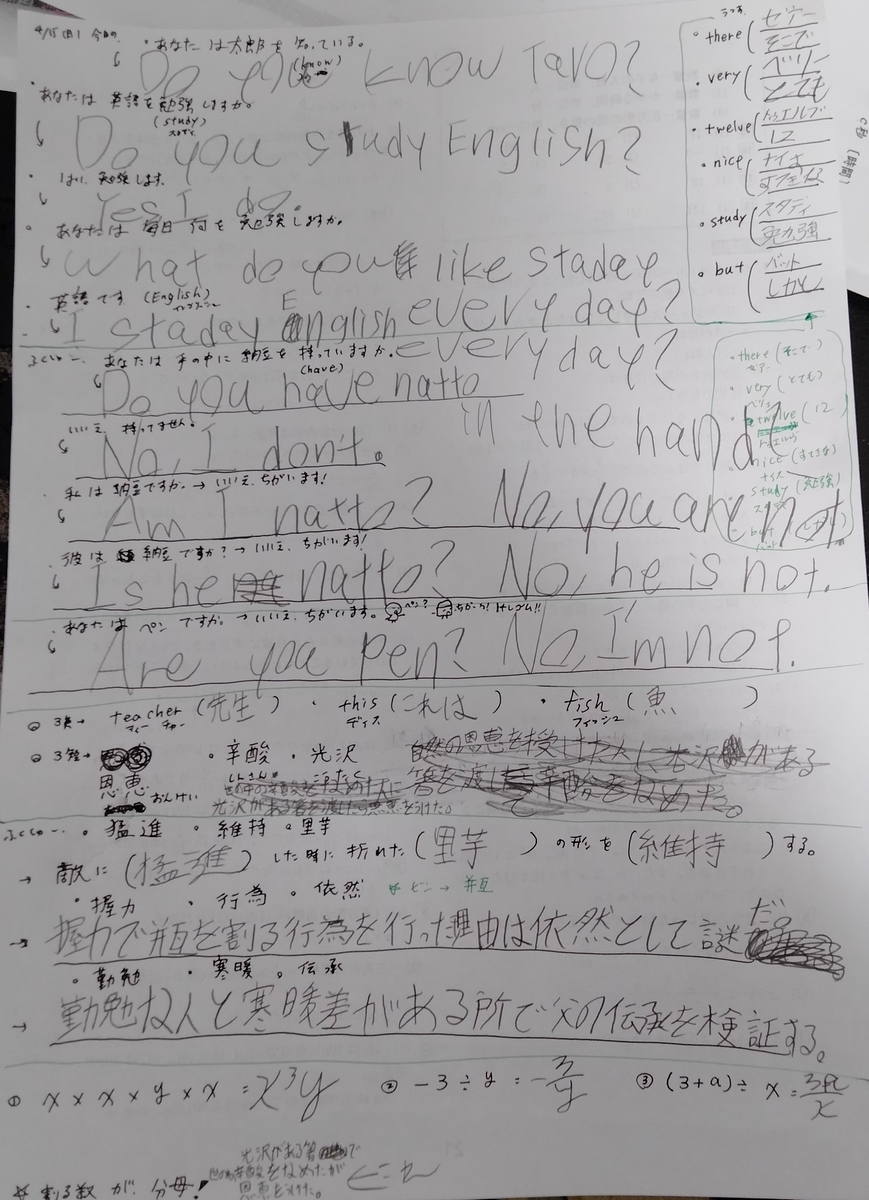 4/15(日) 今日の
・あなたは太郎を知っている。
(know)
Do you know Taro?
・あなたは英語を勉強しますか。
(study)
Do you study English?
・はい、勉強します。
Yes I do.
・あなたは毎日何を勉強しますか。
What do you like staday
every day?
・英語です (English)
I staday English every day?
ふくしゅー
・あなたは手の中に納豆を持っていますか。
(have)
Do you have natto
in the hand?
いいえ、持ってません。
No, I don't.
私は納豆ですか。→ いいえ、ちがいます!
Am I natto? No, you are not.
彼は納豆ですか?→ いいえ、ちがいます!
Is he natto? No, he is not.
あなたはペンですか。→いいえ、ちがいます。
ペン? ちがう! けしゴム!!
Are you pen? No, I'm not.
・there (ゼアー そこで)
・very (ベリー とても)
・twelve (トゥエルブ 12)
・nice (ナイス すてきな)
・study (スタディ 勉強)
・but (バット しかし)
・there (そこで)
ゼアー
・very (とても)
ベリー
・twelve (12)
トゥエルブ
・nice (すてきな)
ナイス
study (勉強)
but
◎ 3英→ teacher (先生) ・this (これは) ・fish (魚)
ティーチャー ディス フィッシュ
◎ 3勉→ ・辛酸 ・光沢
しんさん こうたく
恩恵 おんけい
光沢がある箸を渡したら恩恵をうけた。
ふくしゅー ・猛進 ・維持 ・里芋
→ 敵に(猛進)した時に折れた(里芋)の形を(維持)する。
・握力 ・行為 ・依然 ビン→ 瓶
→ 握力で瓶を割る行為を行った理由は依然として謎だ。
・勤勉 ・寒暖 ・伝承
→ 勤勉な人と寒暖差がある所で父の伝承を検証する。
① x × x × y × x = x³y ② -3 ÷ y = -3/y ③ (3+a) ÷ x = 3a/x
☆ 割る数が、分母!
光沢がある箸で
辛酸をなめたが
恩恵をうけた。